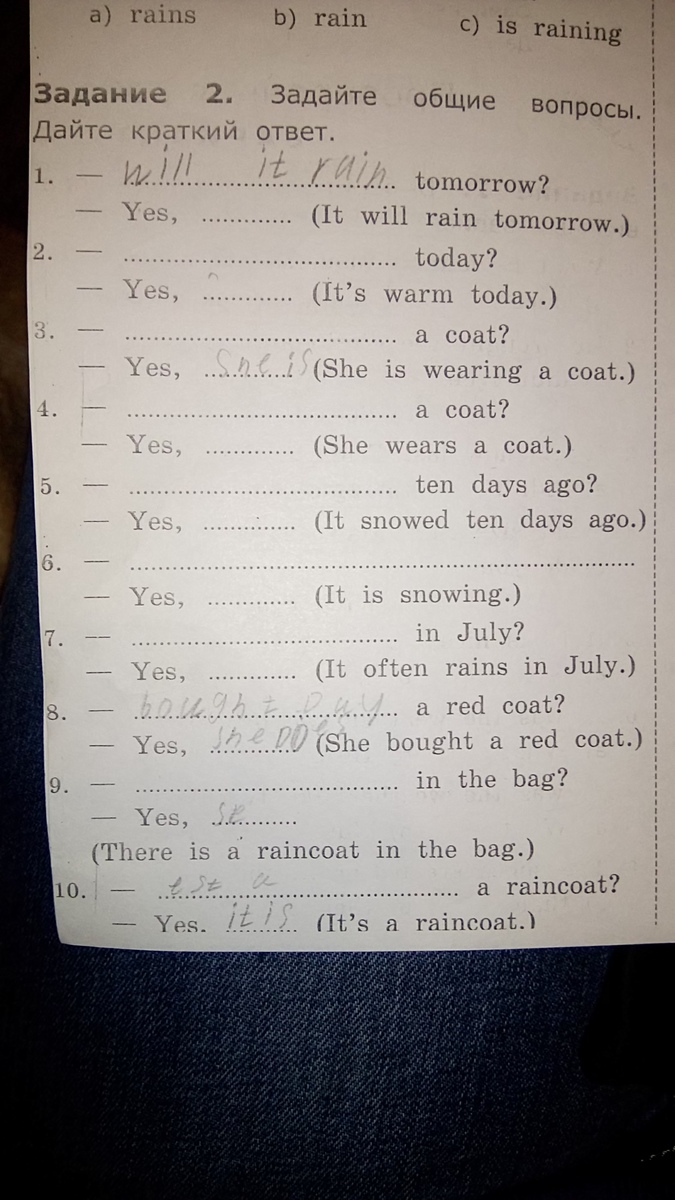 a) rains b) rain c) is raining
Задание 2. Задайте общие вопросы.
Дайте краткий ответ.
1. — will it rain tomorrow?
— Yes, ............. (It will rain tomorrow.)
2. — ....................................... today?
— Yes, ............. (It's warm today.)
3. — ....................................... a coat?
— Yes, She is (She is wearing a coat.)
4. — ....................................... a coat?
— Yes, ............. (She wears a coat.)
5. — ....................................... ten days ago?
— Yes, ............. (It snowed ten days ago.)
6. — .........................................................................
— Yes, ............. (It is snowing.)
7. — ....................................... in July?
— Yes, ............. (It often rains in July.)
8. — bought a red coat?
— Yes, she (She bought a red coat.)
9. — ....................................... in the bag?
— Yes, .............
(There is a raincoat in the bag.)
10. — ........................................... a raincoat?
— Yes. it is (It's a raincoat.)